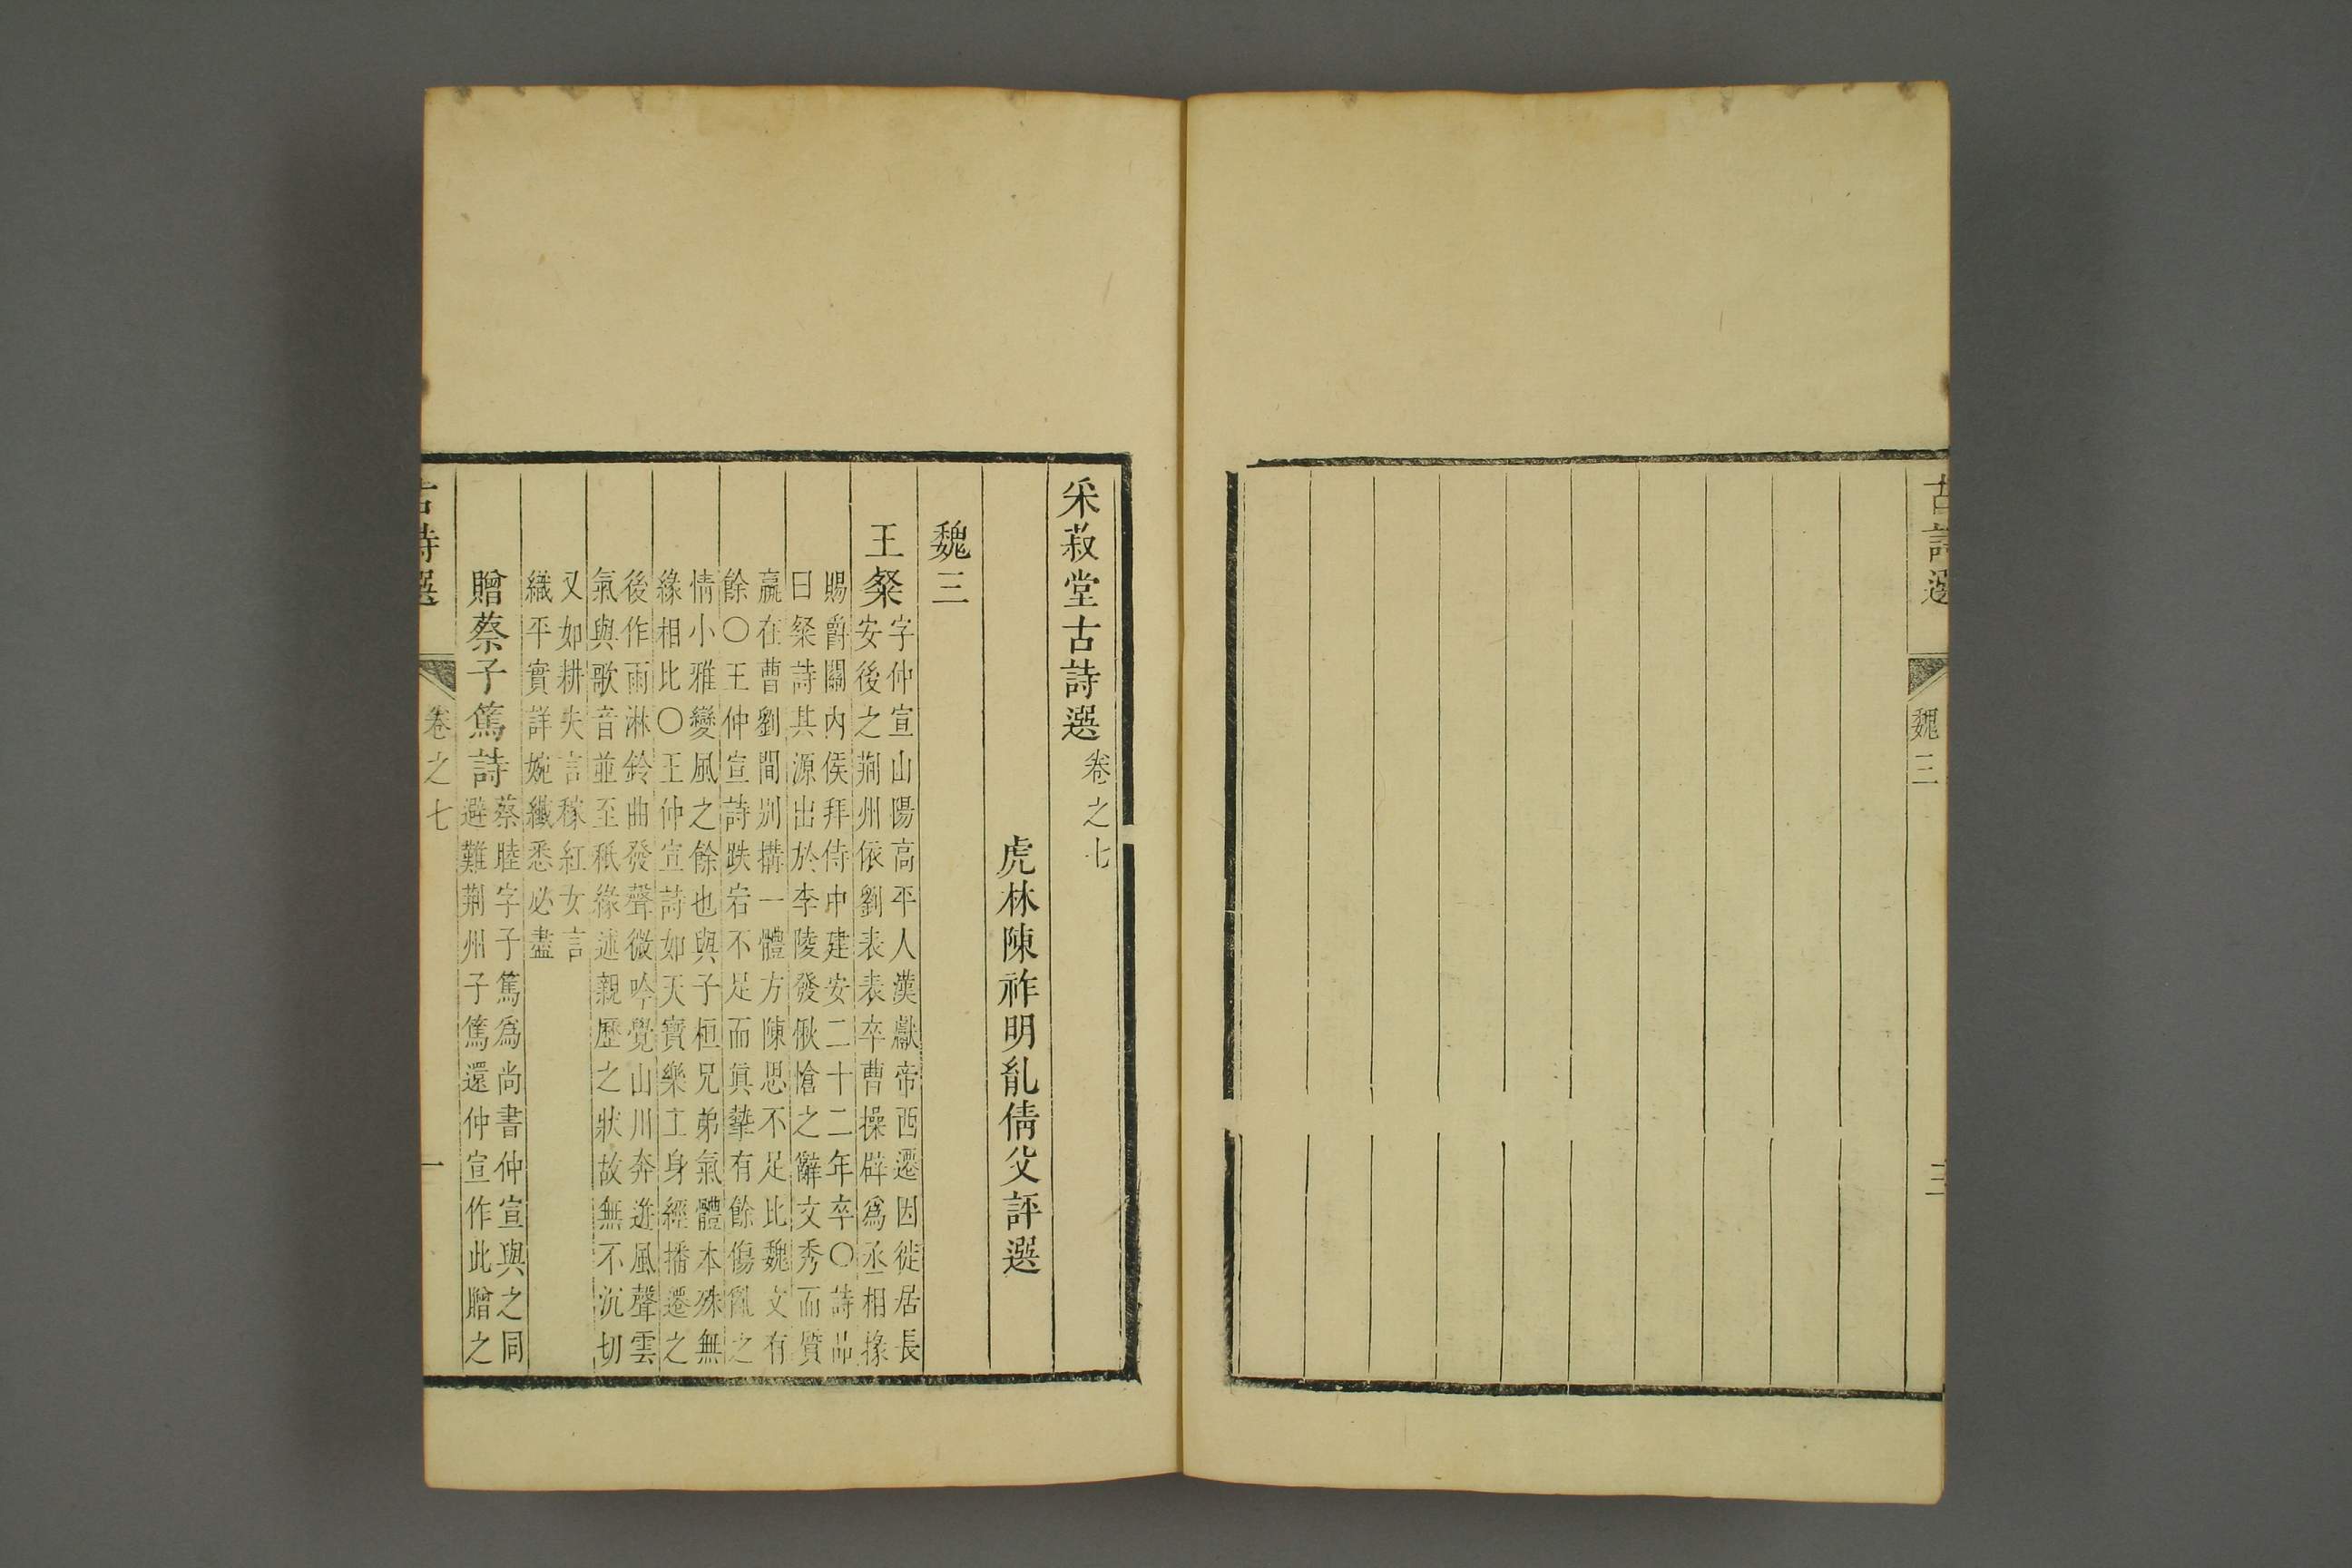 古詩選
魏三
三
采菽堂古詩選卷之七
虎林陳祚明胤倩父評選
魏三
王粲字仲宣山陽高平人漢獻帝西遷因徙居長
安後之荆州依劉表表卒曹操辟爲丞相掾
賜爵關內侯拜侍中建安二十二年卒○詩品
曰粲詩其源出於李陵發愀愴之辭文秀而質
羸在曹劉間別搆一體方陳思不足比魏文有
餘○王仲宣詩跌宕不足而眞摯有餘傷亂之
情小雅變風之餘也與子桓兄弟氣體本殊無
緣相比○王仲宣詩如天寶樂工身經播遷之
後作雨淋鈴曲發聲微吟覺山川奔迸風聲雲
氣與歌音並至秪緣述親歷之狀故無不沉切
又如耕夫言稼紅女言
織平實詳婉纖悉必盡
贈蔡子篤詩蔡睦字子篤爲尚書仲宣與之同
避難荆州子篤還仲宣作此贈之
古詩選
卷之七
一